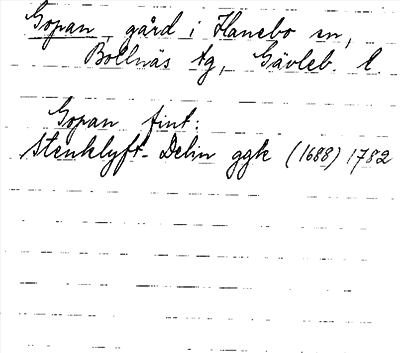 Gopan, gård i Hanebo sn,
Bollnäs tg, Gävleb. l.
Gopan fint:
Stenklyft- Delin ggk (1688) 1782